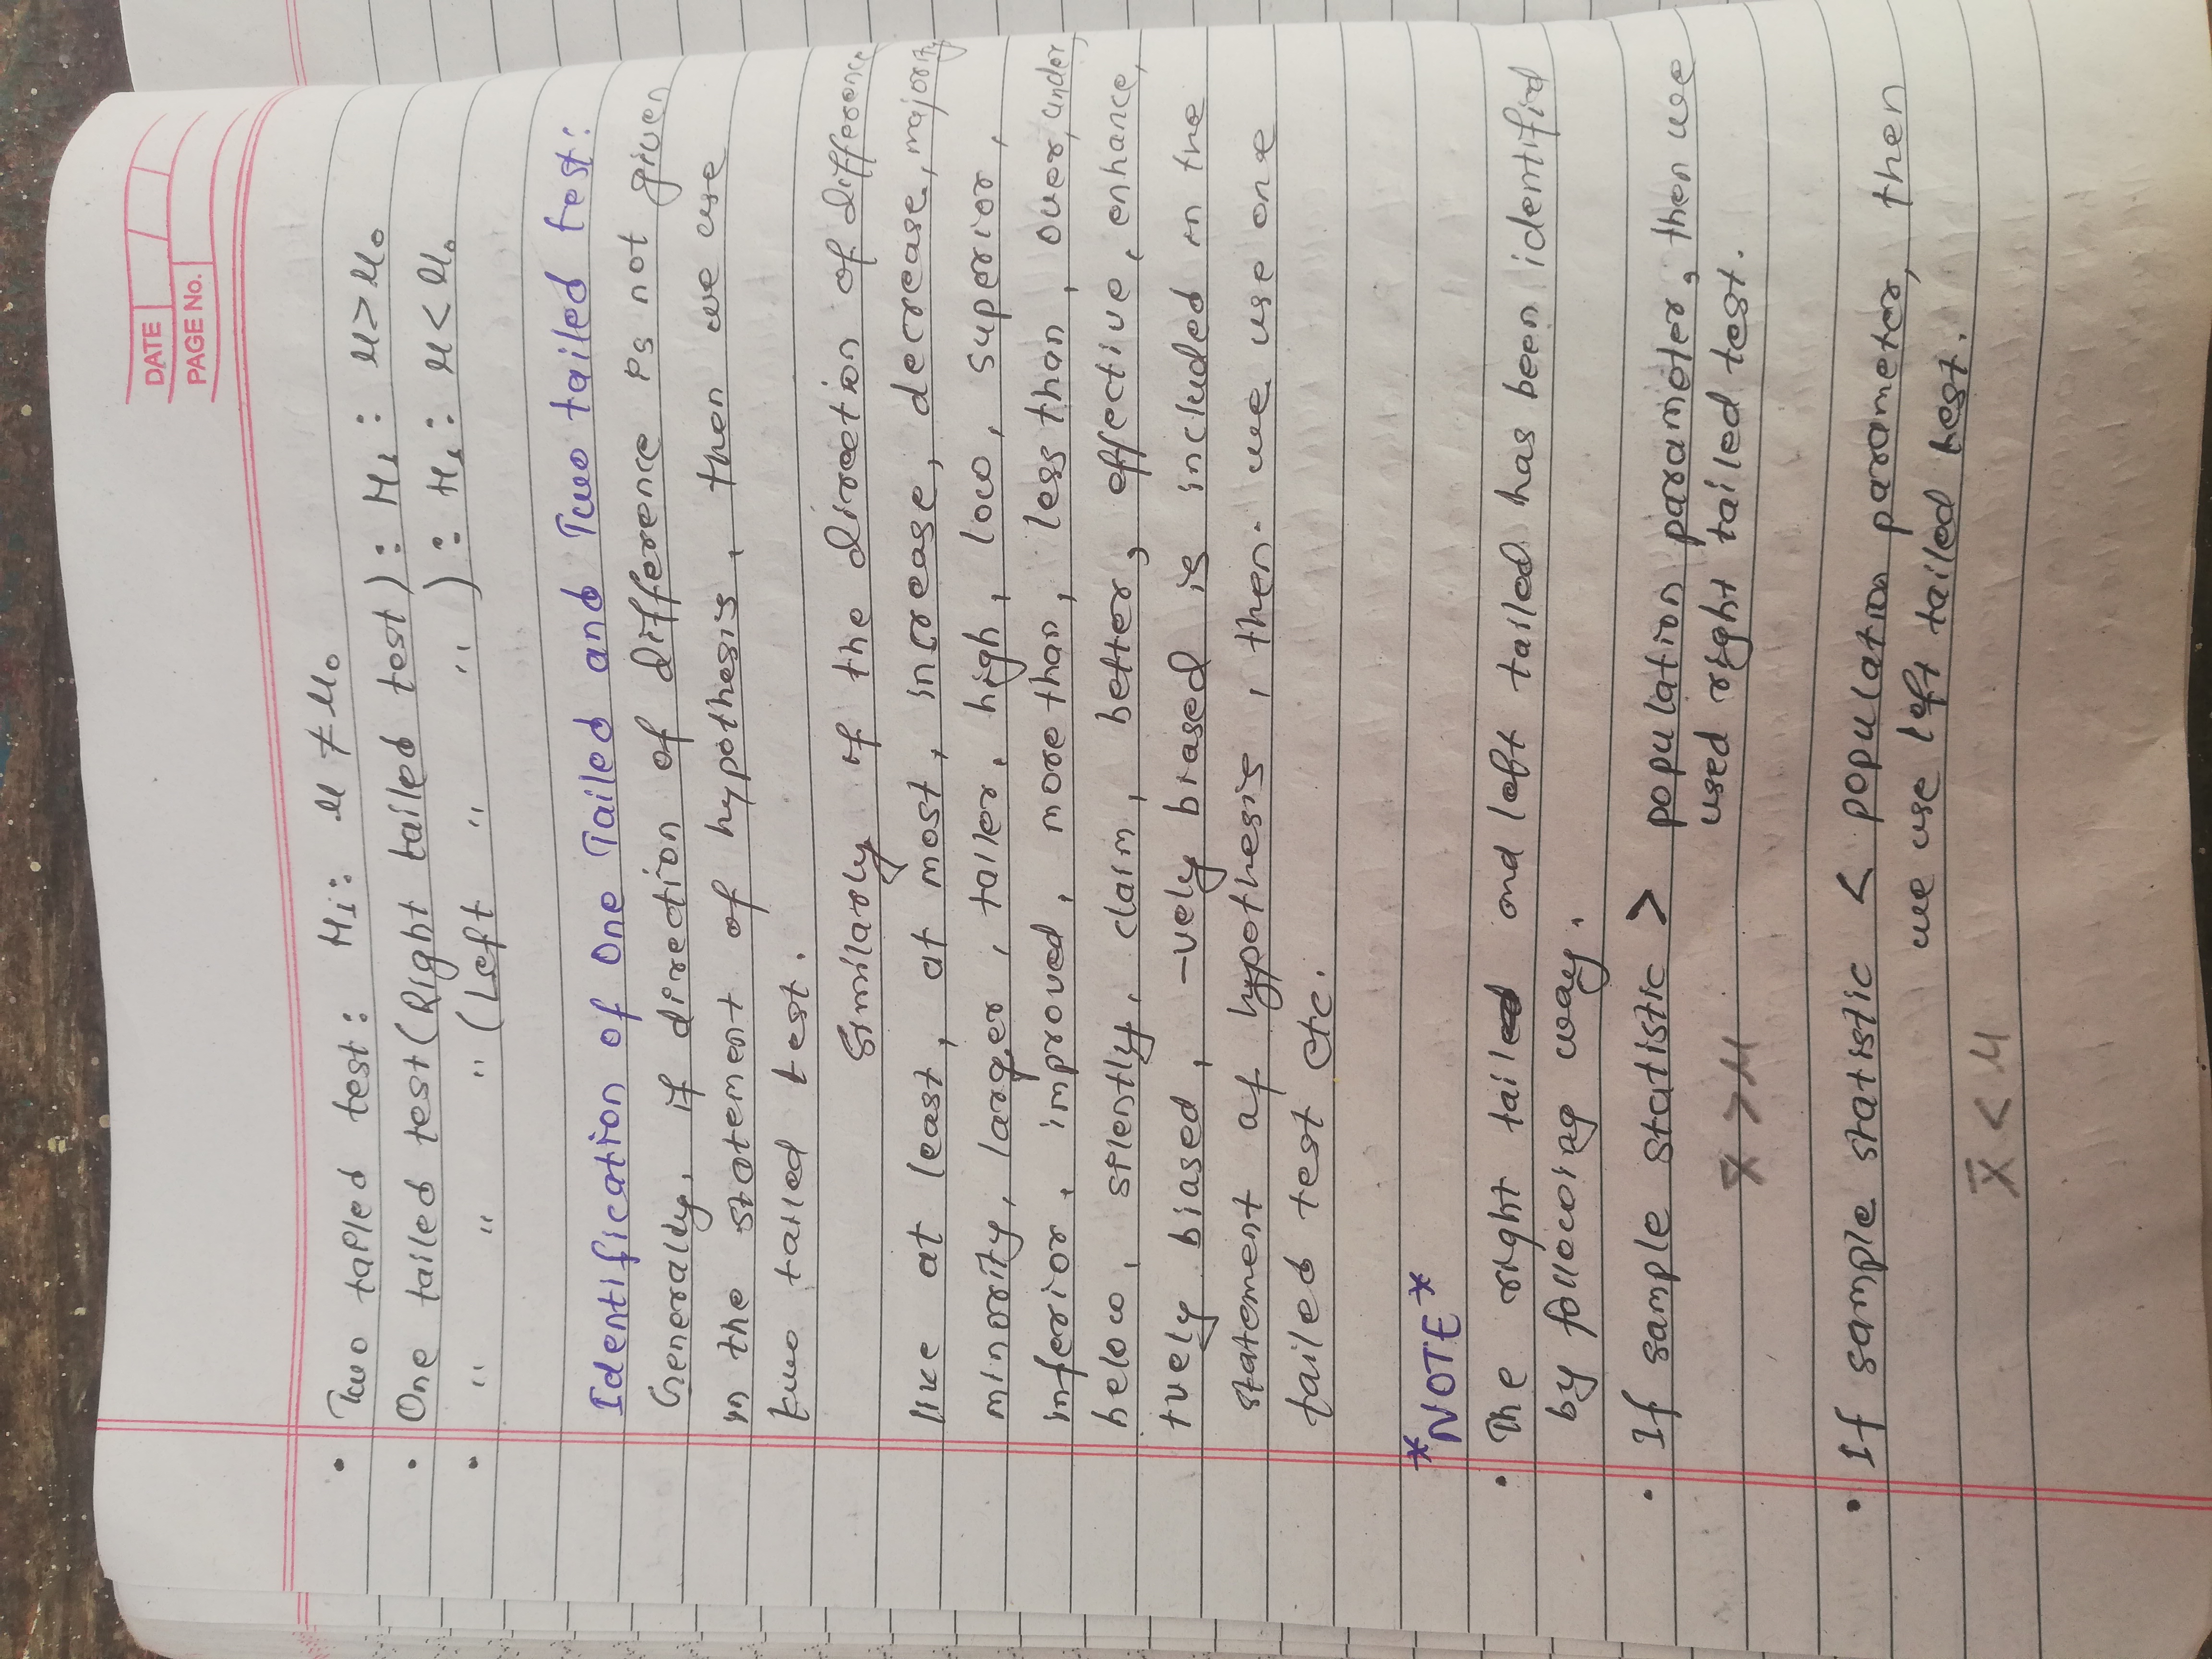 DATE
PAGE No.
• Two tailed test: H₁: μ ≠ μ₀
• One tailed test (Right tailed test): H₁: μ > μ₀
• " " " (Left " " ): H₁: μ < μ₀
Identification of One Tailed and Two tailed test:
Generally, if direction of difference is not given
in the statement of hypothesis, then we use
two tailed test.
Similarly if the direction of difference
like at least, at most, increase, decrease, majority
minority, larger, taller, high, low, superior,
inferior, improved, more than, less than, over, under,
below, silently, claim, better, effective, enhance,
+vely biased, -vely biased is included in the
statement of hypothesis, then we use one
tailed test etc.
*NOTE*
• The right tailed and left tailed has been identified
by following way.
• If sample statistic > population parameter, then we
used right tailed test.
x̄ > μ
• If sample statistic < population parameter, then
we use left tailed test.
x̄ < μ